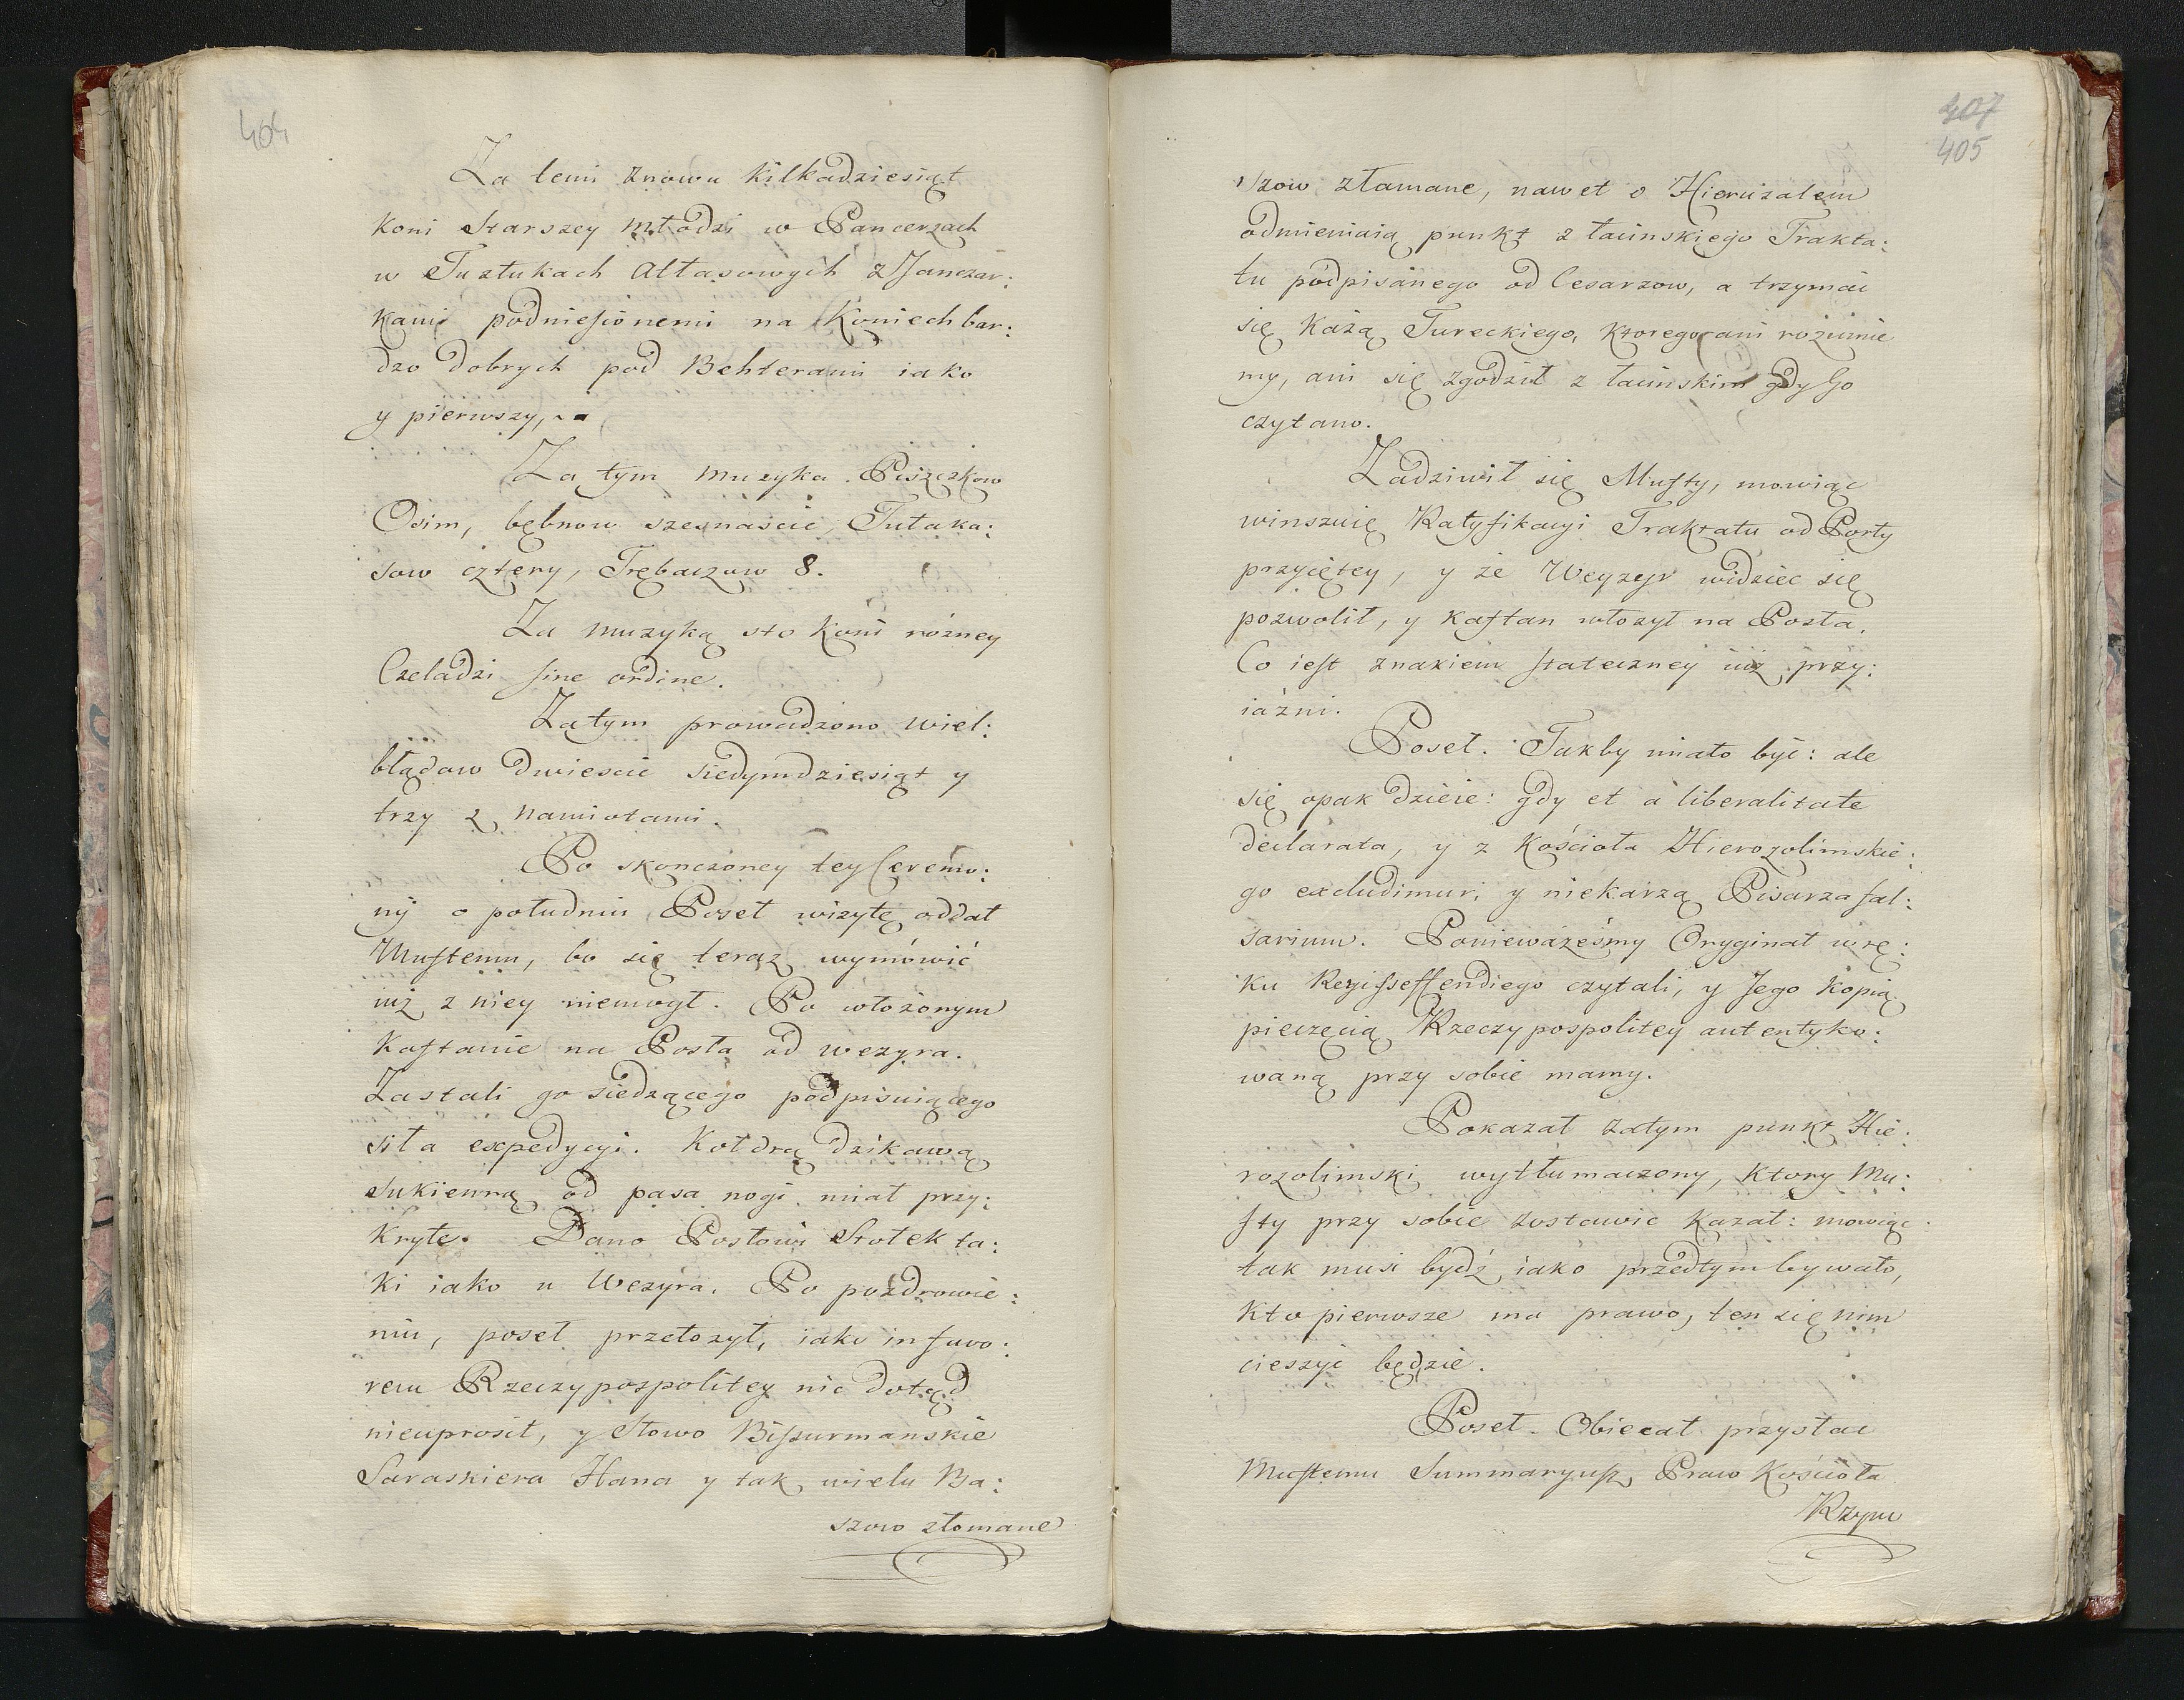 404
Za temi znowu kilkadziesiąt
koni starszey młodzi w Pancerzach
w Tuzłukach Atłasowych z Janczar:
kami podniesionemi na Koniech bar:
dzo dobrych pod Behterami iako
y pierwszy,
Za tym muzyka. Piszczkow
Osim, bębnow szesnascie, Tułaka:
sow cztery, Trębaczow 8.
Za muzyką sto koni rożney
Czeladzi sine ordine.
Zatym prowadzono wiel:
błądow dwiescie siedymdziesiąt y
trzy z namiotami.
Po skonczoney tey Ceremo:
nij o południu Poseł wizytę oddał
Muftemu, bo się teraz wymówić
iuż z niey niemogł. Po włożonym
Kaftanie na Posła od wezyra.
Zastali go siedzącego podpisuiącego
siła expedycyi. Kołdrą dzikawą
sukienną od pasa nogi miał przy:
kryte. Dano Posłowi Stołek ta:
ki iako u Wezyra. Po pozdrowie:
niu, poseł przełozył, iako in favo:
rem Rzeczypospolitey nic dotąd
nieuprosił, y słowo Bissurmanskie
Saraskiera Hana y tak wielu Ba:
szow złomane
407
405
szow złamane, nawet o Hieruzalem
odmieniaią punkt z łacinskiego Trakta:
tu podpisanego od Cesarzow, a trzymać
się każą Tureckiego, ktorego ani rozumie
my, ani się zgodził z łacinskim gdy Go
czytano.
Zadziwił się Mufty, mowiąc
winszuię Ratyfikacyi Traktatu od Porty
przyiętey, y że Weyzyr widziec się
pozwolił, y kaftan włozył na Posła.
Co iest znakiem stateczney iuż przy:
iaźni.
Poseł. Takby miało być: ale
się opak dzieie: gdy et a liberalitate
declarata, y z Kościoła Hierozolimskie:
go excludimur, y niekarzą Pisarza fal:
sarium. Ponieważeśmy Oryginał w rę:
ku Reyisseffendiego czytali, y Jego kopią
pieczęcią Rzeczypospolitey autentyko:
waną przy sobie mamy.
Pokazał zatym punkt Hie:
rozolimski wytłumaczony, ktory Mu:
fty przy sobie zostawic kazał: mowiąc
tak musi bydź iako przedtym bywało,
kto pierwsze ma prawo, ten się nim
cieszyć będzie.
Poseł. Obiecał przysłac
Muftemu Summaryusz Praw Kościoła
Rzym